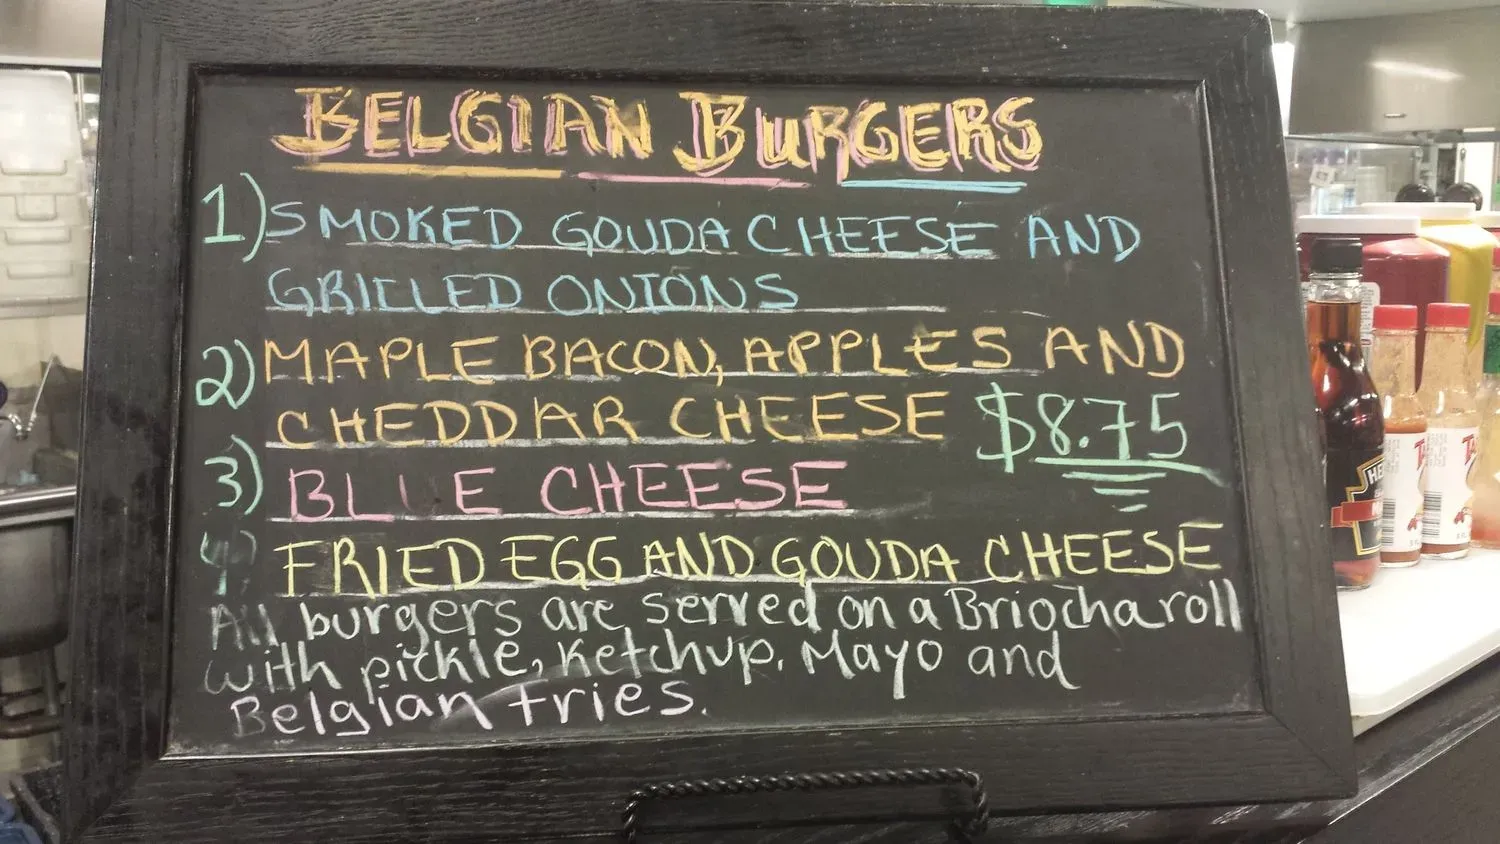 BELGIAN BURGERS
1) SMOKED GOUDA CHEESE AND
GRILLED ONIONS
2) MAPLE BACON, APPLES AND
CHEDDAR CHEESE
$8.75
3) BLUE CHEESE
4) FRIED EGG AND GOUDA CHEESE
All burgers are served on a Briocha roll
with pickle, ketchup, Mayo and
Belgian fries.